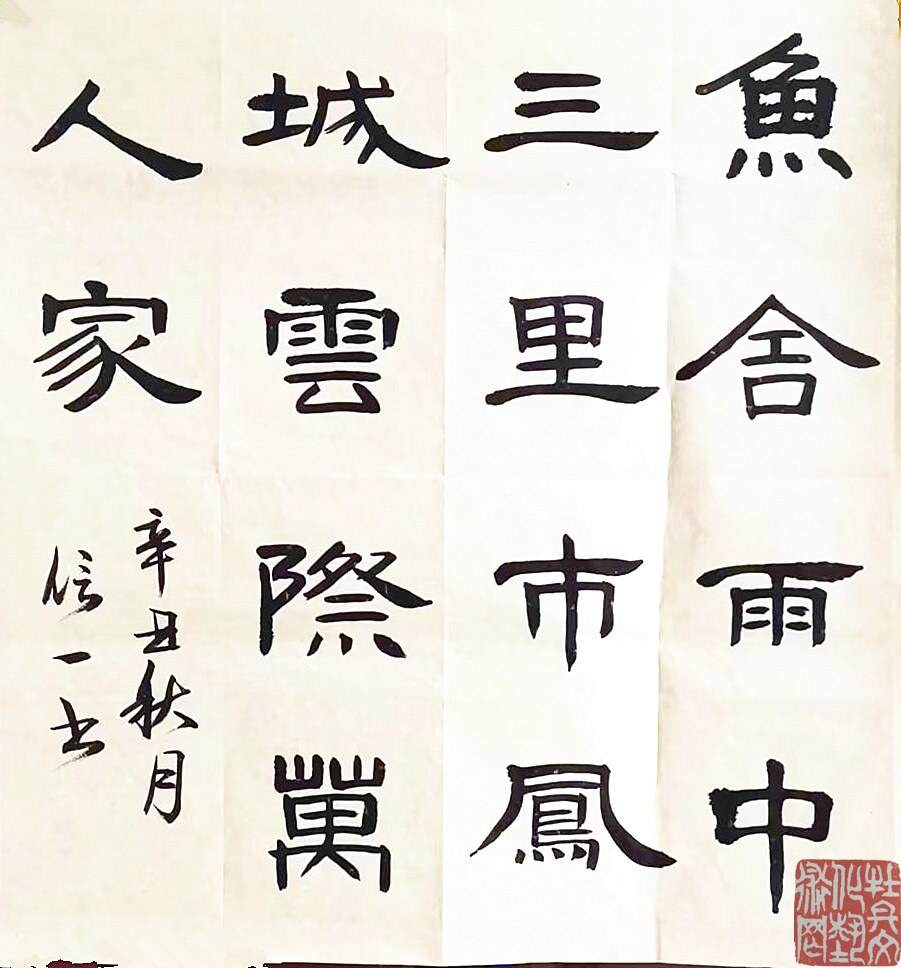 魚舍雨中
三里市鳳
城雲際萬
人家
辛丑秋月
信一书